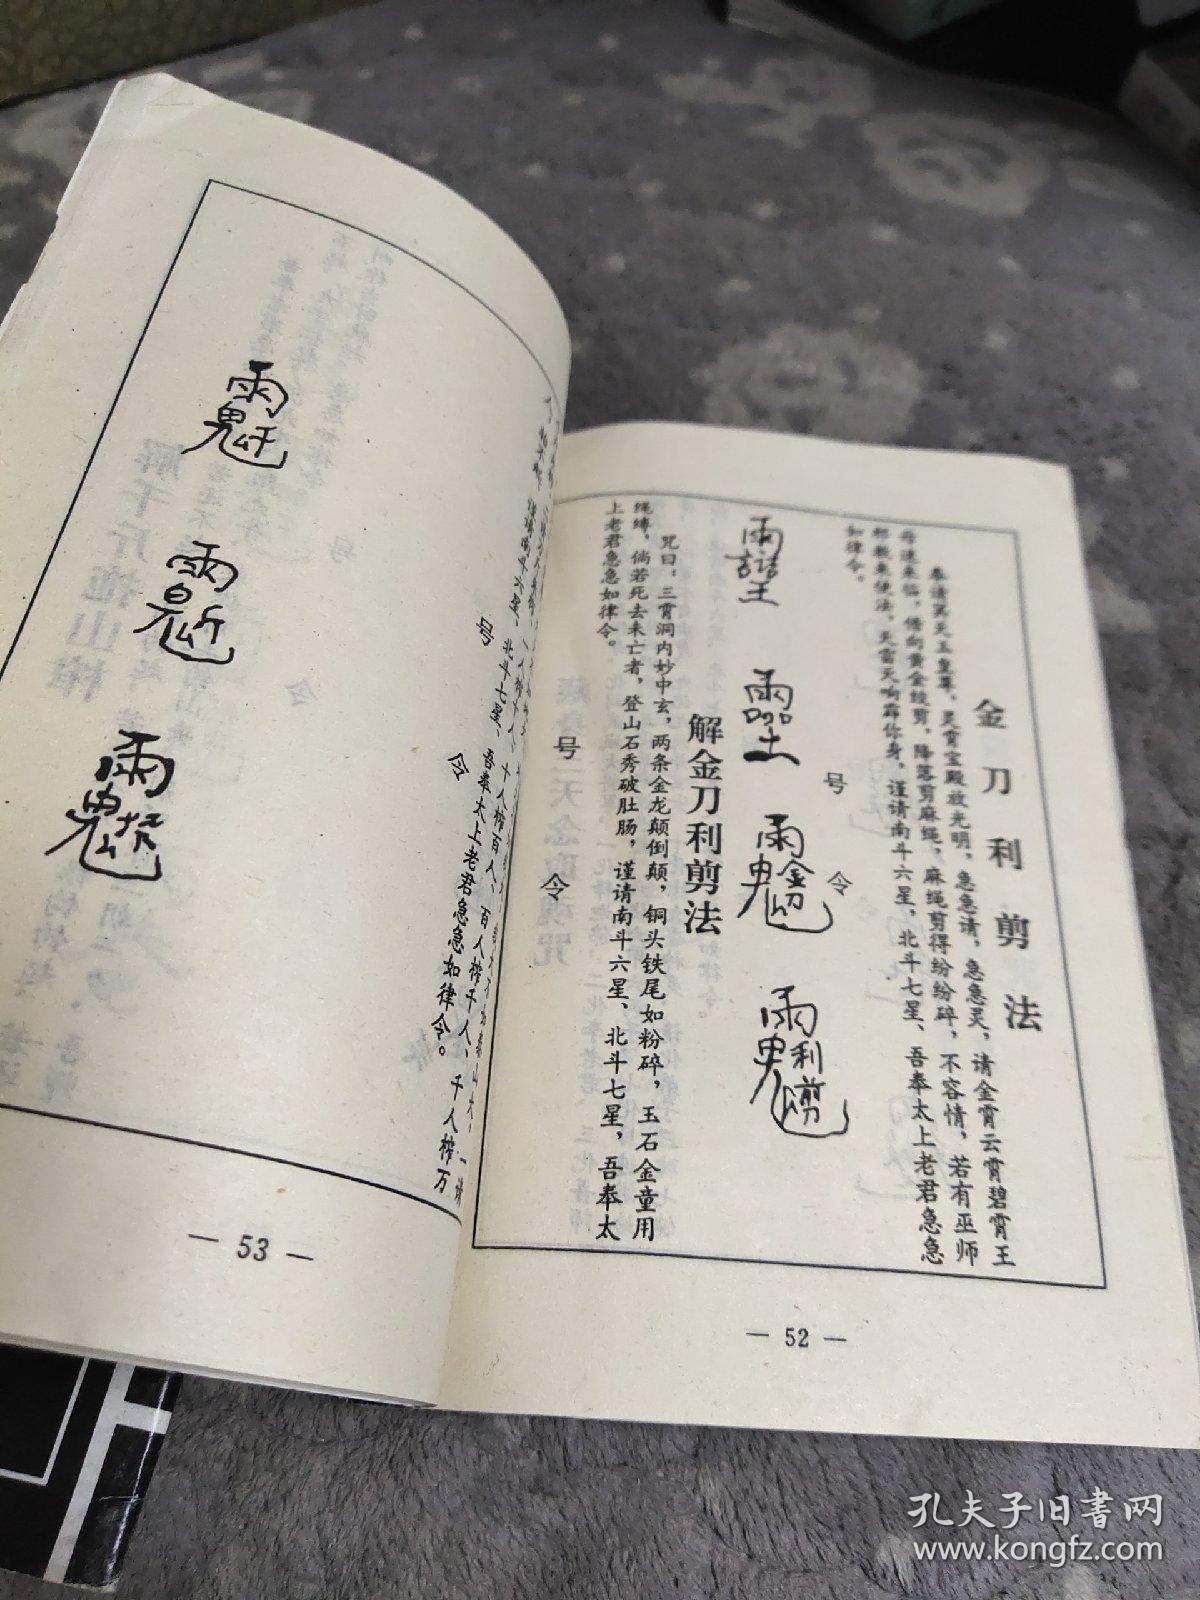 金刀利剪法
奉请昊天玉皇尊，灵霄宝殿放光明，急急请，急急灵，请金霄云霄碧霄王
母速来临，借向黄金绞剪，降落剪麻绳，麻绳剪得纷纷碎，不容情，若有巫师
邪教来使法，天雷天响霹你身，谨请南斗六星，北斗七星、吾奉太上老君急急
如律令。
号 令
解金刀利剪法
咒曰：三霄洞内妙中玄，两条金龙颠倒颠，铜头铁尾如粉碎，玉石金童用
绳缚，倘若死去未亡者，登山石秀破肚肠，谨请南斗六星、北斗七星，吾奉太
上老君急急如律令。
号 令
— 52 —
人榨百人、百人榨千人、千人榨万
谨请南斗六星、北斗七星、吾奉太上老君急急如律令。
号 令
— 53 —
孔夫子旧书网
www.kongfz.com